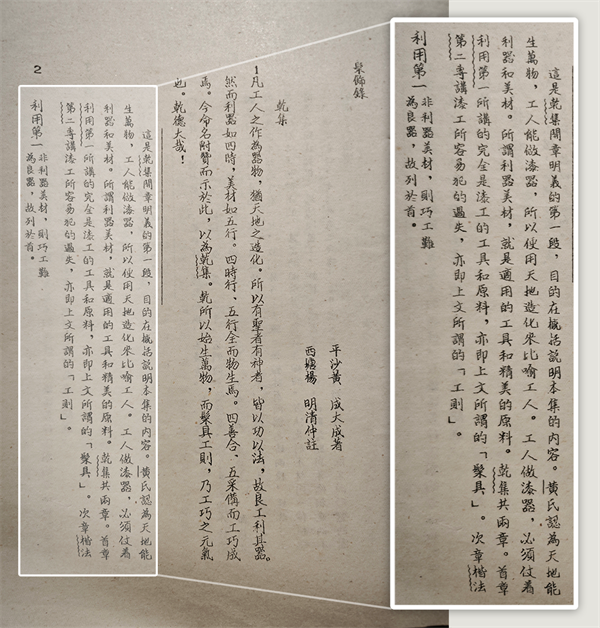 這是乾集開章明義的第一段，目的在概括說明本集的內容。黃氏認為天地能
生萬物，工人能做漆器，所以使用天地造化來比喻工人。工人做漆器，必須仗着
利器和美材。所謂利器美材，就是適用的工具和精美的原料。乾集共兩章。首章
利用第一所講的完全是漆工的工具和原料，亦即上文所謂的「髹具」。次章楷法
第二專講漆工所容易犯的過失，亦即上文所謂的「工則」。
利用第一
非利器美材，則巧工難
為良器，故列於首。
髹飾錄
平沙黃　成大成著
西塘楊　明清仲註
乾集
1 凡工人之作為器物，猶天地之造化。所以有聖者有神者，皆以功以法，故良工利其器。
然而利器如四時，美材如五行。四時行、五行全而物生焉。四善合、五采備而工巧成
焉。今命名附贊而示於此，以為乾集。乾所以始生萬物，而髹具工則，乃工巧之元氣
也。乾德大哉！
2
這是乾集開章明義的第一段，目的在概括說明本集的內容。黃氏認為天地能
生萬物，工人能做漆器，所以使用天地造化來比喻工人。工人做漆器，必須仗着
利器和美材。所謂利器美材，就是適用的工具和精美的原料。乾集共兩章。首章
利用第一所講的完全是漆工的工具和原料，亦即上文所謂的「髹具」。次章楷法
第二專講漆工所容易犯的過失，亦即上文所謂的「工則」。
利用第一
非利器美材，則巧工難
為良器，故列於首。